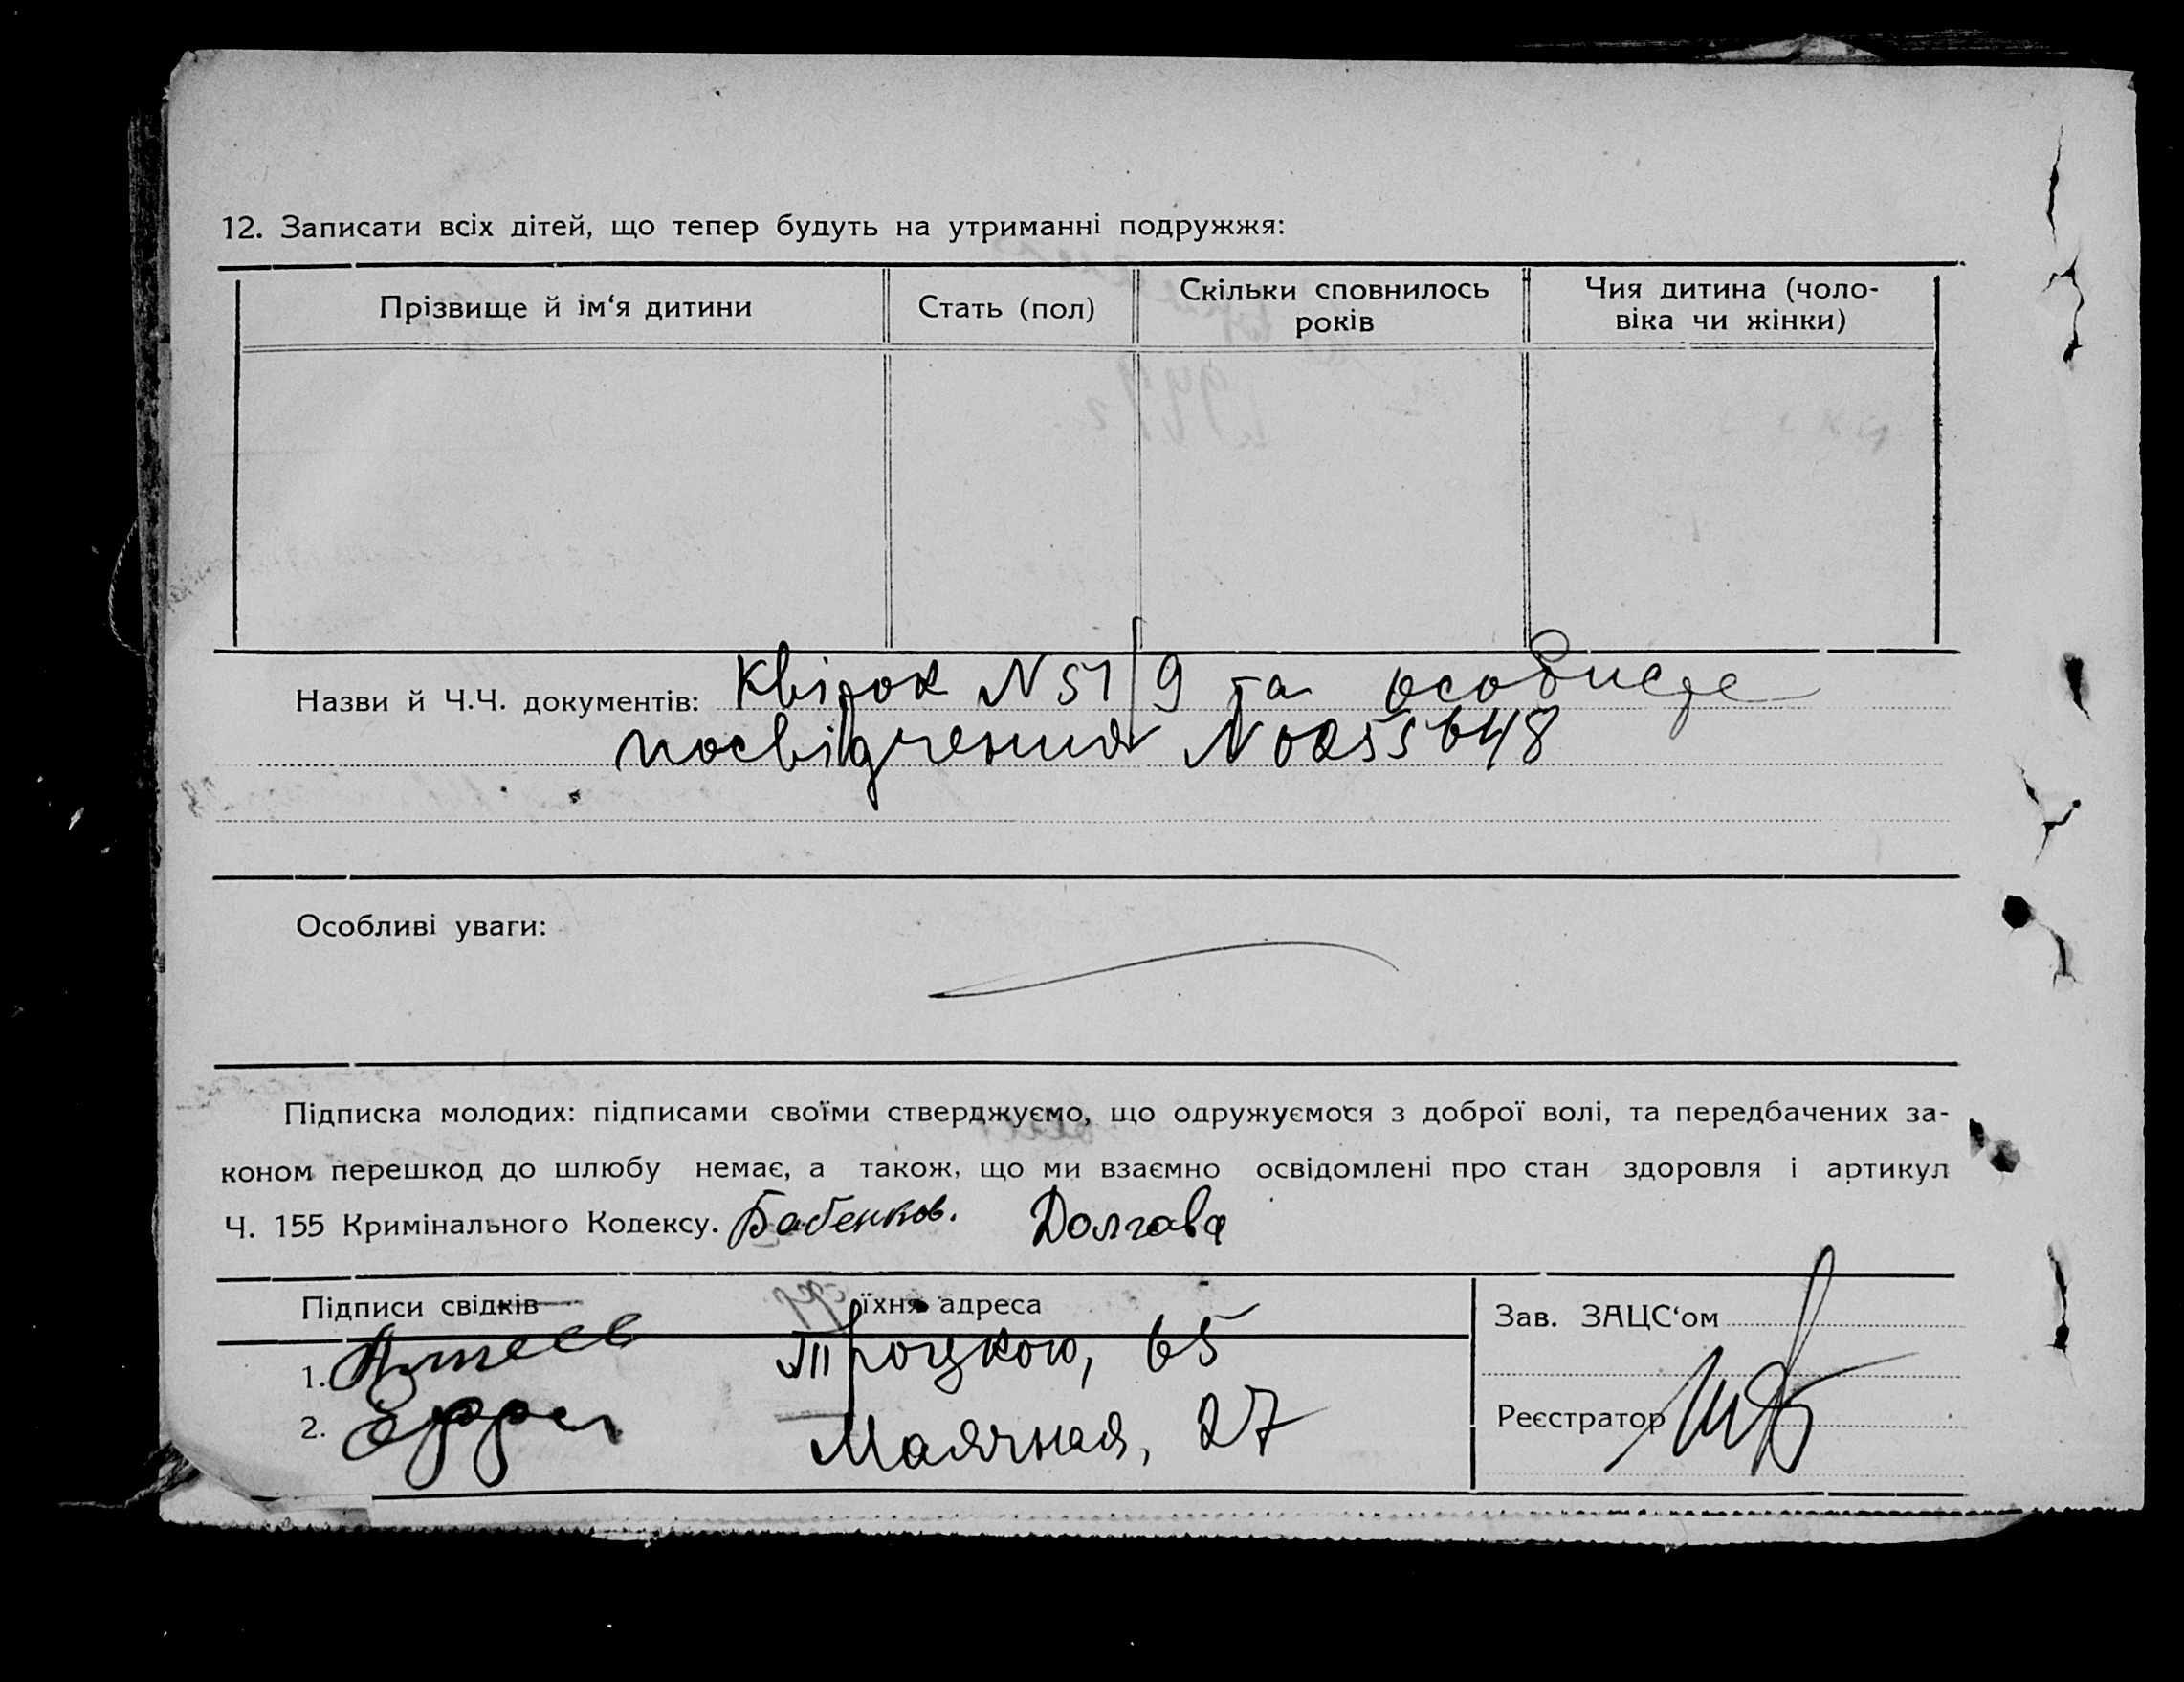 12. Записати всіх дітей, що тепер будуть на утриманні подружжя:
Прізвище й ім‘я дитини
Стать (пол)
Скільки сповнилось
років
Чия дитина (чоло-
віка чи жінки)
Назви й Ч.Ч. документів: Квіток N 51/9 та особисте
посвідчення N 0255648
Особливі уваги:
Підписка молодих: підписами своїми стверджуємо, що одружуємося з доброї волі, та передбачених за-
коном перешкод до шлюбу немає, а також, що ми взаємно освідомлені про стан здоровля і артикул
Ч. 155 Кримінального Кодексу. Бабенков. Долгова
Підписи свідків їхня адреса
Зав. ЗАЦС‘ом
1. Троцкою, 65
2. Маячная, 27
Реєстратор